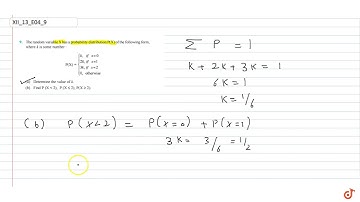 XII_13_E04_9
9. The random variable X has a probability distribution P(X) of the following form,
where k is some number :
P(X) = { k, if x=0
2k, if x=1
3k, if x=2
0, otherwise
(a) Determine the value of k.
(b) Find P (X < 2), P (X ≤ 2), P(X ≥ 2).
Σ P = 1
K + 2K + 3K = 1
6K = 1
K = 1/6
(b) P(x<2) = P(x=0) + P(x=1)
3K = 3/6 = 1/2